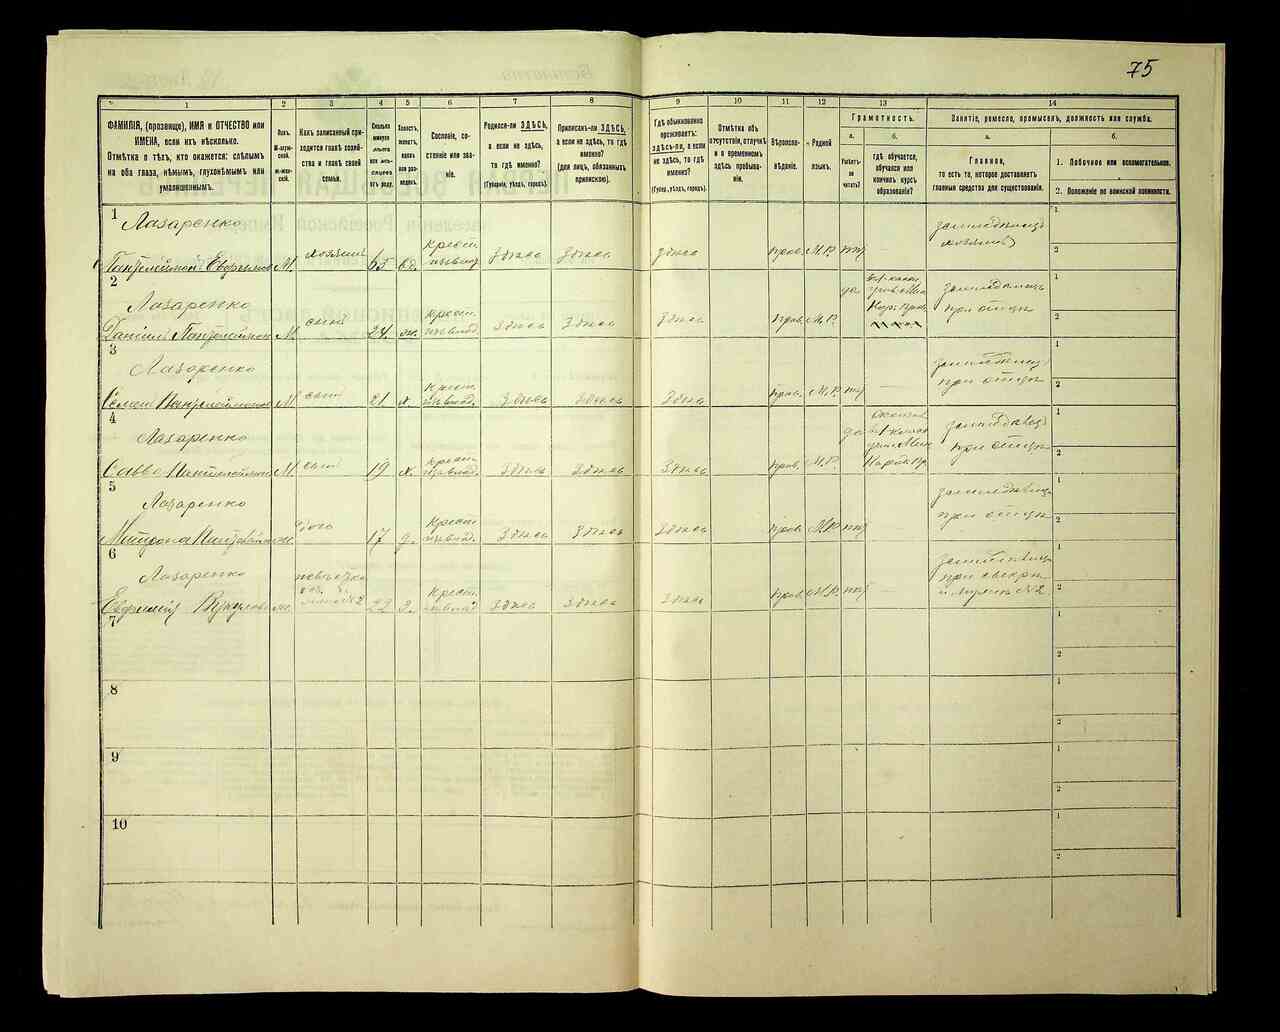 75
1
2
3
4
5
6
7
8
9
10
11
12
13
14
ФАМИЛІЯ, (прозвище), ИМЯ и ОТЧЕСТВО или
ИМЕНА, если ихъ нѣсколько.
Отмѣтка о тѣхъ, кто окажется: слѣпымъ
на оба глаза, нѣмымъ, глухонѣмымъ или
умалишеннымъ.
Полъ.
М-мужской.
Ж-женскій.
Какъ записанный приходится главѣ хозяйства и главѣ своей семьи.
Сколько минуло лѣтъ или мѣсяцевъ отъ роду.
Холостъ, женатъ, вдовъ или разведенъ.
Сословіе, состояніе или званіе.
Родился-ли ЗДѢСЬ,
а если не здѣсь,
то гдѣ именно?
(Губернія, уѣздъ, городъ).
Приписанъ-ли ЗДѢСЬ,
а если не здѣсь, то гдѣ
именно?
(для лицъ, обязанныхъ
припискою).
Гдѣ обыкновенно
проживаетъ:
здѣсь-ли, а если
не здѣсь, то гдѣ
именно?
(Губер., уѣздъ, городъ).
Отмѣтка объ
отсутствіи, отлучкѣ
и о временномъ
здѣсь пребываніи.
Вѣроисповѣданіе.
Родной
языкъ.
Грамотность.
а.
Умѣетъ-ли
читать?
б.
гдѣ обучается,
обучался или
кончилъ курсъ
образованія?
Занятіе, ремесло, промыселъ, должность или служба.
а.
Главное,
то есть то, которое доставляетъ
главныя средства для существованія.
б.
1. Побочное или вспомогательное.
2. Положеніе по воинской повинности.
1
Лазаренко
Пантелеймонъ Евфимовъ М. хозяинъ 65 вд. крест. Здѣсь Здѣсь Здѣсь прав. М.Р. нѣтъ земледѣлецъ хозяинъ
1
2
2
Лазаренко
Даніилъ Пантелеймон М. сынъ 24. ж. крест. Здѣсь Здѣсь Здѣсь прав. М.Р. да земледѣлецъ при отцѣ
1
2
3
Лазаренко
Семенъ Пантелеймонов М. сынъ 21 х. крест. Здѣсь Здѣсь Здѣсь прав. М.Р. нѣтъ — земледѣлецъ при отцѣ
1
2
4
Лазаренко
Савва Пантелеймон М. сынъ 19 х. крест. Здѣсь Здѣсь Здѣсь прав. М.Р. да земледѣлецъ при отцѣ
1
2
5
Лазаренко
ж. дочь 17 д. Крест. Здѣсь Здѣсь Здѣсь прав. М.Р. нѣтъ — при отцѣ
1
2
6
Лазаренко
Евфимія ж. невѣстка 22 З. Крест. Здѣсь Здѣсь Здѣсь прав. М.Р. нѣтъ — при свекрѣ и мужѣ №2
1
2
7
1
2
8
1
2
9
1
2
10
1
2